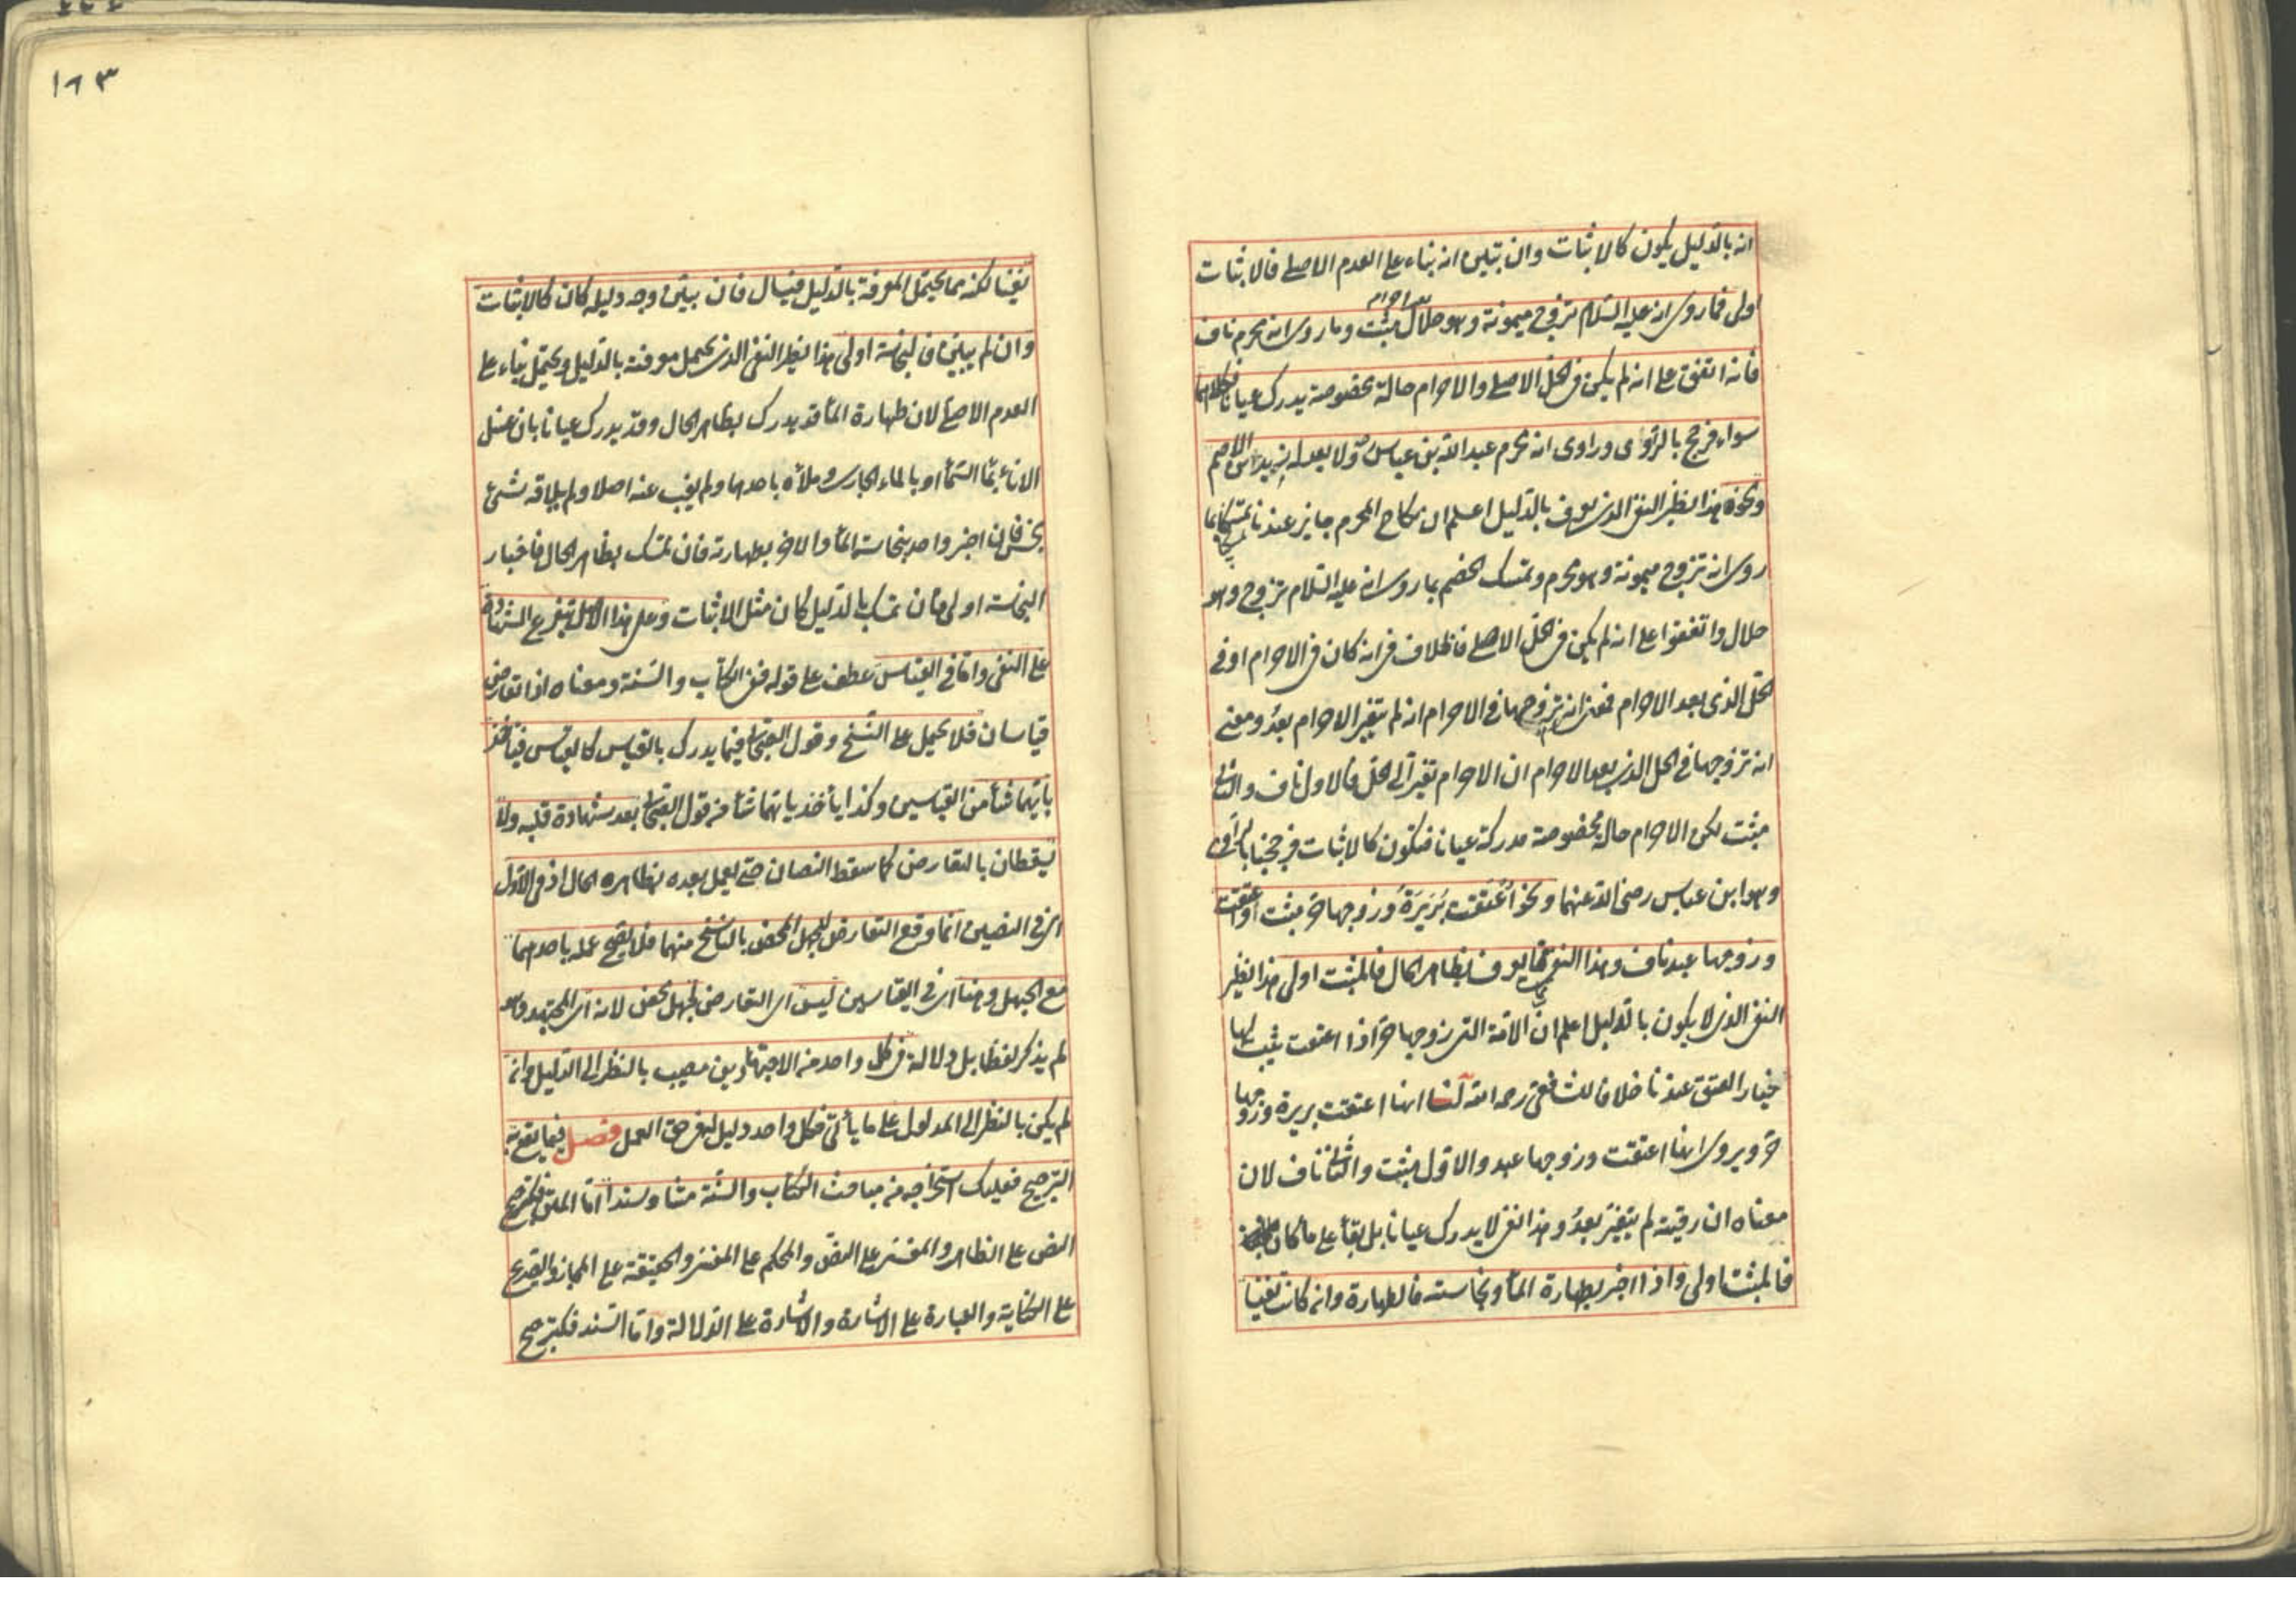 انه بالدليل يكون كالاثبات وان تبين انه بناء على العدم الاصلي فالاثبات
اولى فما روى انه عليه السلام تزوج ميمونة وهو حلال مثبت وما روى انه محرم ناف
فانه اتفق على انه لم يكن في الحل الاصلي والاحرام حالة مخصوصة يدرك عيانا فكلاهما
سواء فرجح بالراوى وراوى انه محرم عبد الله بن عباس ولا يعدله يزيد بن الاصم
ونحوه هذا نظير النفي الذي يعرف بالدليل اعلم ان نكاح المحرم جايز عندنا تمسكا بما
روى انه تزوج ميمونة وهو محرم وتمسك الخصم بما روى انه عليه السلام تزوج وهو
حلال واتفقوا على انه لم يكن في الحل الاصلي فالخلاف في انه كان في الاحرام او في
الحل الذى بعد الاحرام فمعنى انه تزوجها في الاحرام انه لم يتغير الاحرام بعد ومعنى
انه تزوجها في الحل الذى بعد الاحرام ان الاحرام تغير الى الحل فالاول ناف والثاني
مثبت لكن الاحرام حالة مخصوصة مدركة عيانا فتكون كالاثبات فرجحنا بالراوى
وهو ابن عباس رضى الله عنهما ونحو اعتقت بريرة وزوجها حر مثبت واعتقت
وزوجها عبد ناف وهذا النفي مما يعرف بظاهر الحال فالمثبت اولى هذا نظير
النفي الذى لا يكون بالدليل اعلم ان الامة التى زوجها حر اذا اعتقت يثبت لها
خيار العتق عندنا خلافا للشافعى رحمه الله لنا انها اعتقت بريرة وزوجها
حر ويروى انها اعتقت وزوجها عبد والاول مثبت والثاني ناف لان
معناه ان رقيته لم يتغير بعد وهذا النفي لا يدرك عيانا بل بقأ على ما كان
فالمثبت اولى واذا اخبر بطهارة المأ ونجاسته فالطهارة وان كانت نفيا
١٦٣
نفيا لكنه مما يحتمل المعرفة بالدليل فيسال فان بين وجه دليله كان كالاثبات
وان لم يبين فالنجاسة اولى هذا نظير النفي الذى يحتمل معرفته بالدليل ويحتمل بناء على
العدم الاصلى لان طهارة المأ قد يدرك بظاهر الحال وقد يدرك عيانا بان غسل
الانأ بمأ السمأ او بالماء الجارى وملأه باحدهما ولم يغب عنه اصلا ولم يلاقه شئ
نجس فان اخبر واحد بنجاسة المأ والاخر بطهارته فان تمسك بظاهر الحال فاخبار
النجاسة اولى وان تمسك بالدليل كان مثل الاثبات وعلى هذا الاصل يتفرع الشهادة
على النفي واما في القياس عطف على قوله ففي الكتاب والسنة ومعناه اذا تعارض
قياسان فلا يحمل على النسخ وقول الصحابى فيما يدرك بالقياس كالقياس فيأخذ
بايهما شأ من القياسين وكذا يأخذ بايهما شأ من قول الصحابى بعد شهادة قلبه ولا
يسقطان بالتعارض كما سقط النصان حتى يعمل بعده بظاهره الحال اذ في الاول
اى في النصين انما وقع التعارض للجهل المحض بالناسخ منهما فلا يصح عمله باحدهما
مع الجهل وهنا اى في القياسين ليس اى التعارض لجهل محض لانه اى المجتهد وهو
لم يذكر لفظا بل دلالة في كل واحد من الاجتهادين مصيب بالنظر الى الدليل وان
لم يكن بالنظر الى المدلول على ما يأتى فكل واحد دليل في حق العمل فصل فيما يقع به
الترجيح فعليك استخراجه من مباحث الكتاب والسنة متنا وسندا اما المتن فكترجيح
النص على الظاهر والمفسر على النص والمحكم على المفسر والحقيقة على المجاز والصريح
على الكناية والعبارة على الاشارة والاشارة على الدلالة واما السند فكترجيح